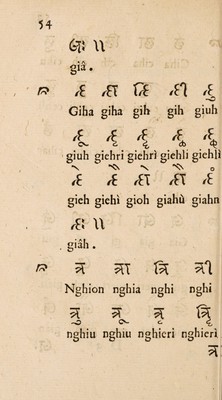 54
जः ॥
giâ .
झ झा झि झी झु
Giha giha gih gih giuh
झू झृ झॄ झॢ झॣ
giuh giehri giehrì giehli giehlì
झे झै झो झौ झं
gieh giehì gioh giahù giahn
झः ॥
giâh .
ञ ञा ञि ञी
Nghion nghia nghi nghi
ञु ञू ञृ ञॄ
nghiu nghiu nghieri nghieri
ञ